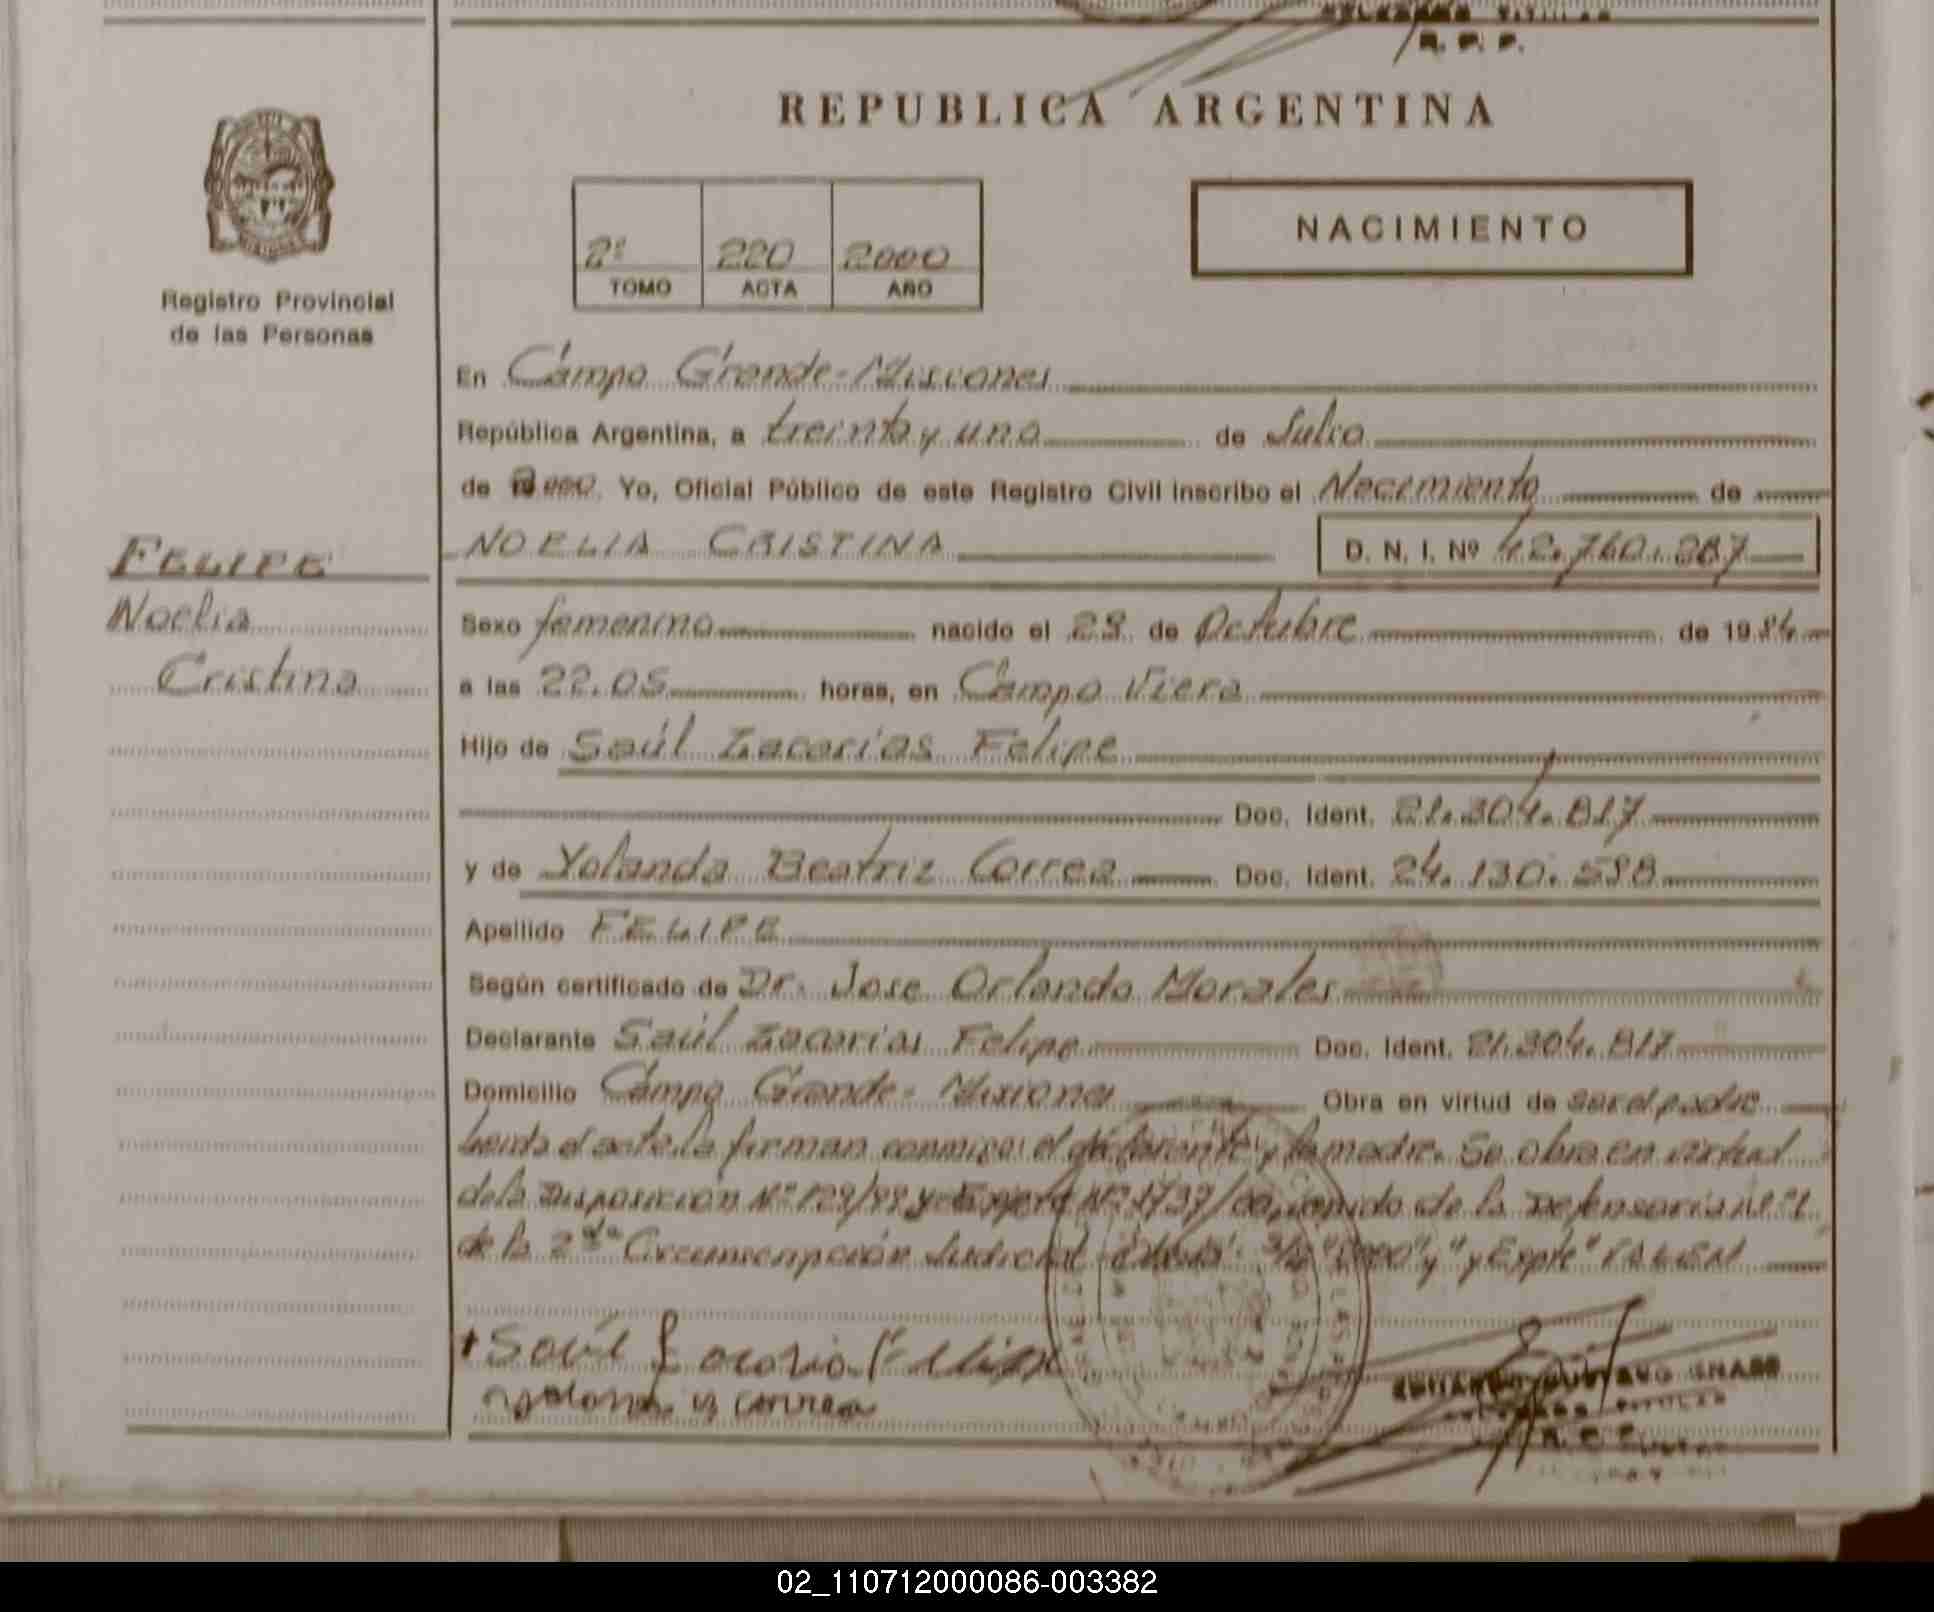 TITULAR
R. P. P.
REPUBLICA ARGENTINA
Registro Provincial
de las Personas
2º 220 2000
TOMO ACTA AÑO
NACIMIENTO
En Campo Grande-Misiones
República Argentina, a treinta y uno de Julio
de 2000. Yo, Oficial Público de este Registro Civil inscribo el Nacimiento de
FELIPE
Noelia
Cristina
NOELIA CRISTINA D. N. I. Nº 42.760.287
Sexo femenino nacido el de Octubre de 19
a las 22.05 horas, en Campo Viera
Hijo de Saúl Zacarías Felipe
Doc. Ident. 21.304.817
y de Yolanda Beatriz Correa Doc. Ident. 24.130.598
Apellido FELIPE
Según certificado de Dr. Jose Orlando Morales
Declarante Saúl Zacarías Felipe Doc. Ident. 21.304.817
Domicilio Campo Grande- Misiones Obra en virtud de ser el padre
Leída el acta la firman conmigo: el declarante y la madre. Se obra en virtud
de la Disposición Nº 129/99 y de la Defensoría
de la 2da Circunscripción Judicial
Saúl
Correa
GUSTAVO
TITULAR
02_110712000086-003382